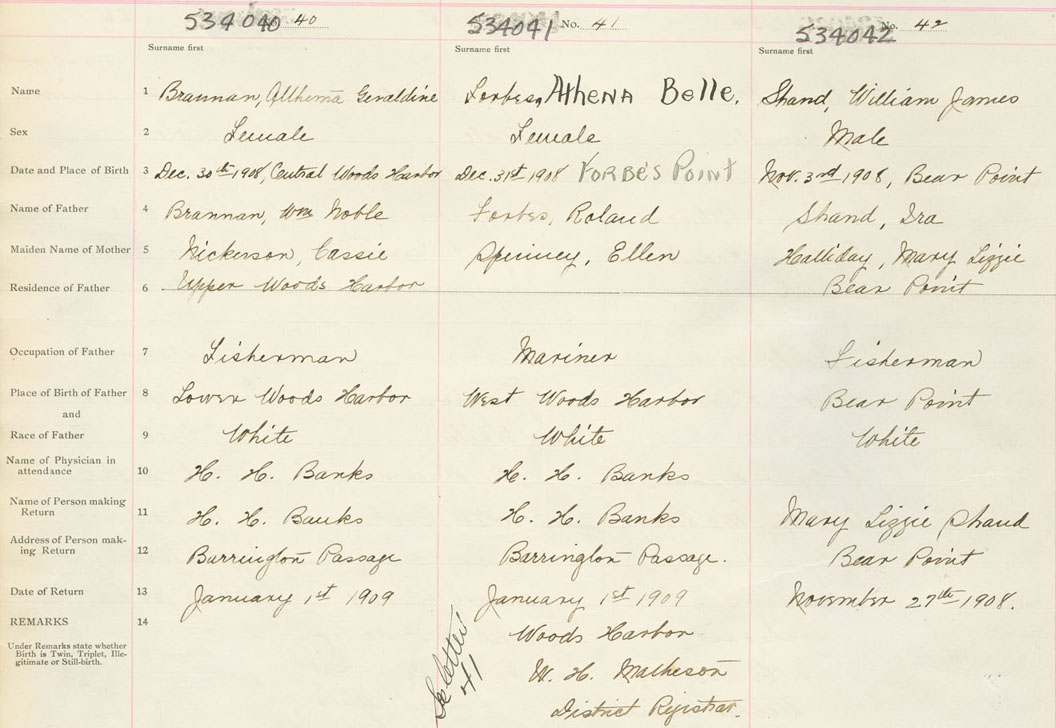 534040 40 534041 No. 41 534042 No. 42
Surname first Surname first Surname first
Name 1 Brannan, Geraldine Forbes, Athena Belle. Shand, William James
Sex 2 Female Female Male
Date and Place of Birth 3 Dec. 30th 1908, Central Woods Harbor Dec. 31st 1908 Forbe's Point Nov. 3rd 1908, Bear Point
Name of Father 4 Brannan, Wm Noble Forbes, Roland Shand, Ira
Maiden Name of Mother 5 Nickerson, Cassie Spinney, Ellen Halliday, Mary Lizzie
Residence of Father 6 Upper Woods Harbor Bear Point
Occupation of Father 7 Fisherman Mariner Fisherman
Place of Birth of Father 8 Lower Woods Harbor West Woods Harbor Bear Point
and
Race of Father 9 White White White
Name of Physician in
attendance 10 H. H. Banks H. H. Banks
Name of Person making
Return 11 H. H. Banks H. H. Banks Mary Lizzie Shand
Address of Person mak-
ing Return 12 Barrington Passage Barrington Passage. Bear Point
Date of Return 13 January 1st 1909 January 1st 1909 November 27th 1908.
REMARKS 14
Under Remarks state whether
Birth is Twin, Triplet, Ille-
gitimate or Still-birth.
Woods Harbor
W. H. Matheson
District Registrar.
letter
41